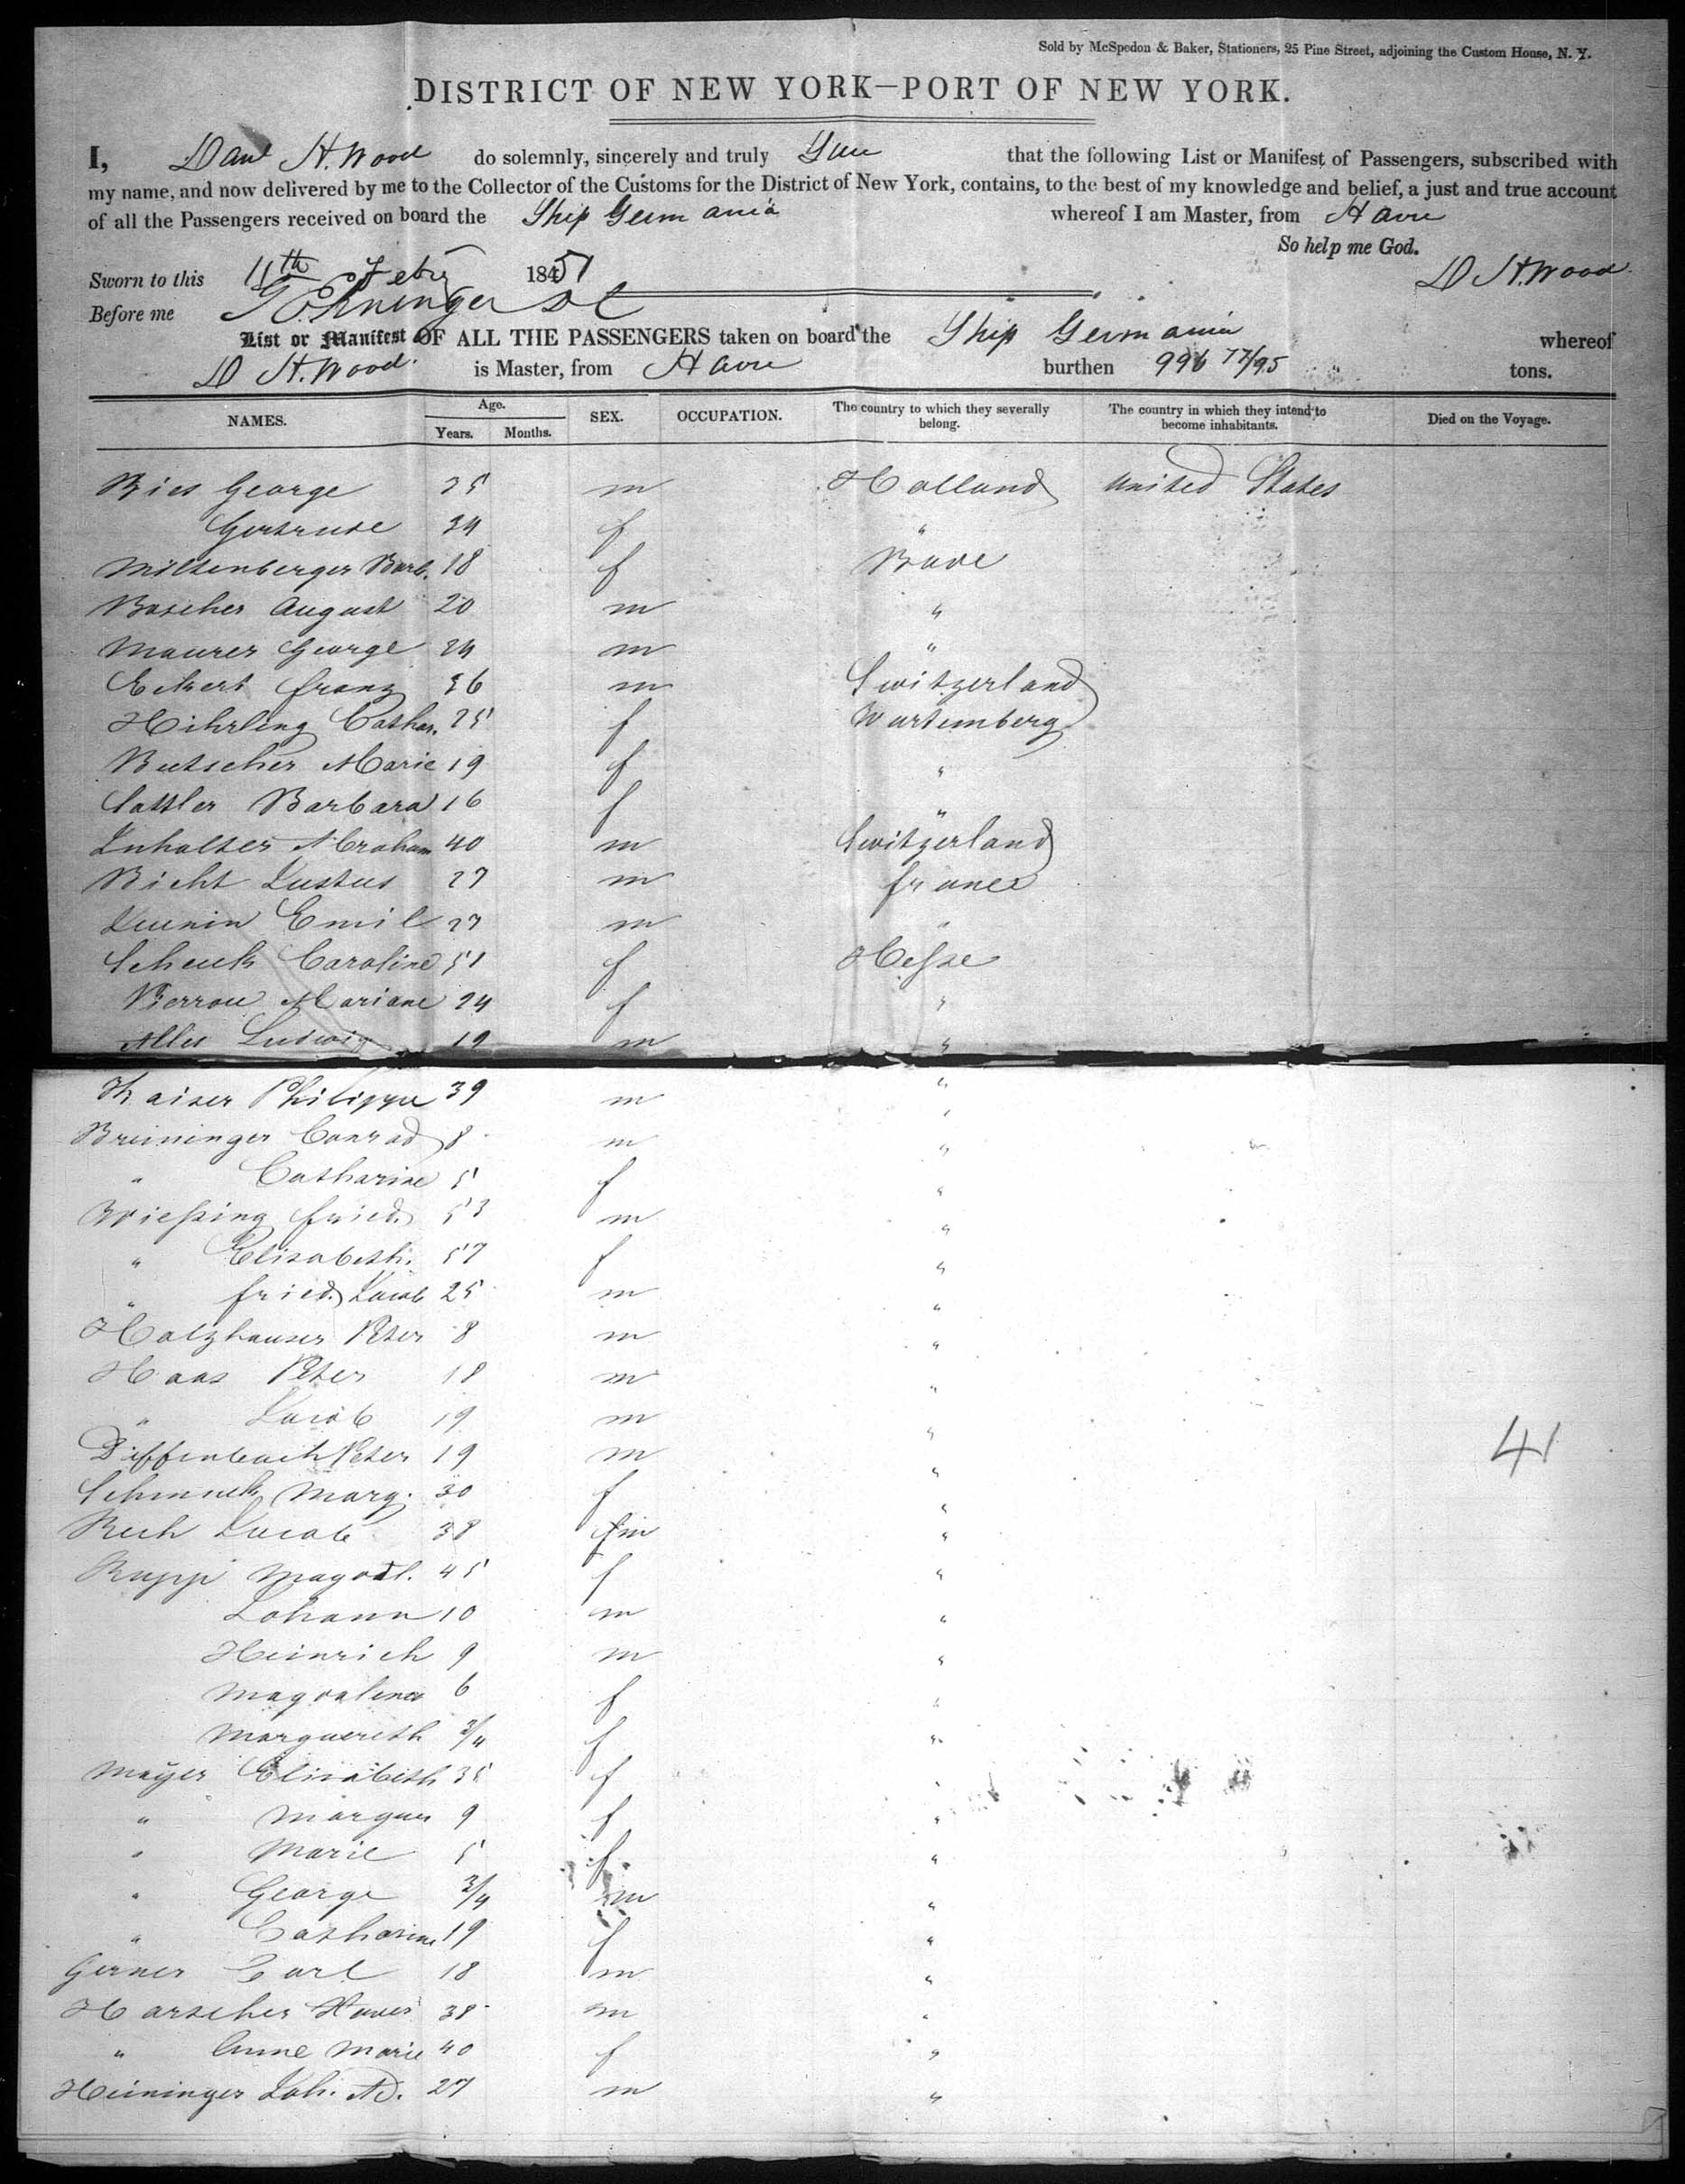 Sold by McSpedon & Baker, Stationers, 25 Pine Street, adjoining the Custom House, N. Y.
DISTRICT OF NEW YORK—PORT OF NEW YORK.
I, Danl H. Wood do solemnly, sincerely and truly that the following List or Manifest of Passengers, subscribed with
my name, and now delivered by me to the Collector of the Customs for the District of New York, contains, to the best of my knowledge and belief, a just and true account
of all the Passengers received on board the Ship Germania whereof I am Master, from Havre
So help me God.
Sworn to this 11th Feby 1851 D H. Wood
Before me
List or Manifest OF ALL THE PASSENGERS taken on board the Ship Germania whereof
D H. Wood is Master, from Havre burthen 996 77/95 tons.
NAMES. Age. Years. Months. SEX. OCCUPATION. The country to which they severally belong. The country in which they intend to become inhabitants. Died on the Voyage.
Ries George 35 m Holland United States
Gertrude 34 f "
Miltenberger Barb. 18 f Bade
Boscher August 20 m "
Maurer George 24 m "
Eckert Franz 36 m Switzerland
Hihrling Cathar. 25 f Wurtemberg
Butscher Marie 19 f "
Sattler Barbara 16 f "
Inholter Abraham 40 m Switzerland
Bicht Justus 27 m France
Emil 27 m "
Schuck Caroline 51 f Hesse
Pierrou Mariane 24 f "
Alles Ludwig 19 m "
Kaiser Philippe 39 m "
Breininger Conrad 8 m "
" Catharine 5 f "
Wiessing Fried. 53 m "
" Elisabeth. 57 f "
" Fried. Jacob 25 m "
Holzhauser Peter 8 m "
Haas Peter 18 m "
" Jacob 19 m "
Dieffenbach Peter 19 m "
Schmuck Marg. 30 f "
Rech Jacob 38 m "
Rupp Magdl. 45 f "
Johann 10 m "
Heinrich 9 m "
Magdalena 6 f "
Marguereth 3/4 f "
Mayer Elisabeth 35 f "
" Margue 9 f "
" Marie 5 f "
" George 3/4 m "
" Catharine 19 f "
Gerner Carl 18 m "
Harscher Xaver 38 m "
" Anne Marie 40 f "
Heininger Joh. Ad. 27 m "
41